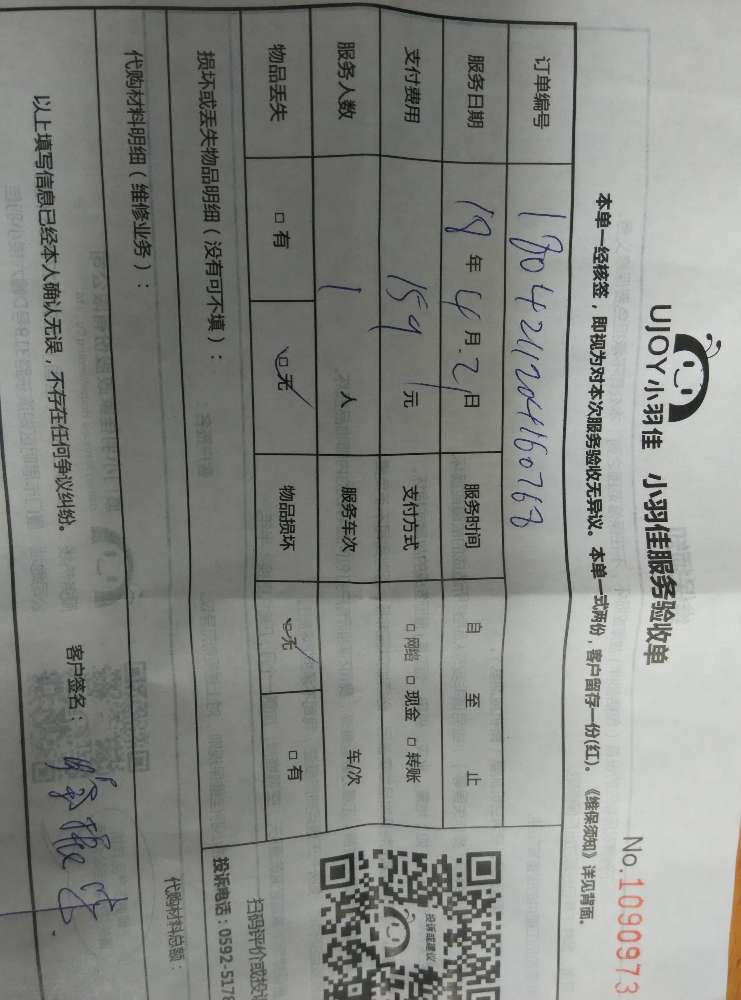 UJOY小羽佳 小羽佳服务验收单
No.1090973
本单一经核签，即视为对本次服务验收无异议。本单一式两份，客户留存一份(红)。《维保须知》详见背面。
订单编号 180421120441160768
服务日期 18年4月2日 服务时间 自 至 止
支付费用 159元 支付方式 □网络 □现金 □转账
服务人数 1人 服务车次 车/次
物品丢失 □有 □无 物品损坏 □无 □有
损坏或丢失物品明细（没有可不填）：
投诉或建议
扫码评价或投
投诉电话：0592-5178
代购材料明细（维修业务）： 代购材料总额：
以上填写信息已经本人确认无误，不存在任何争议纠纷。 客户签名：